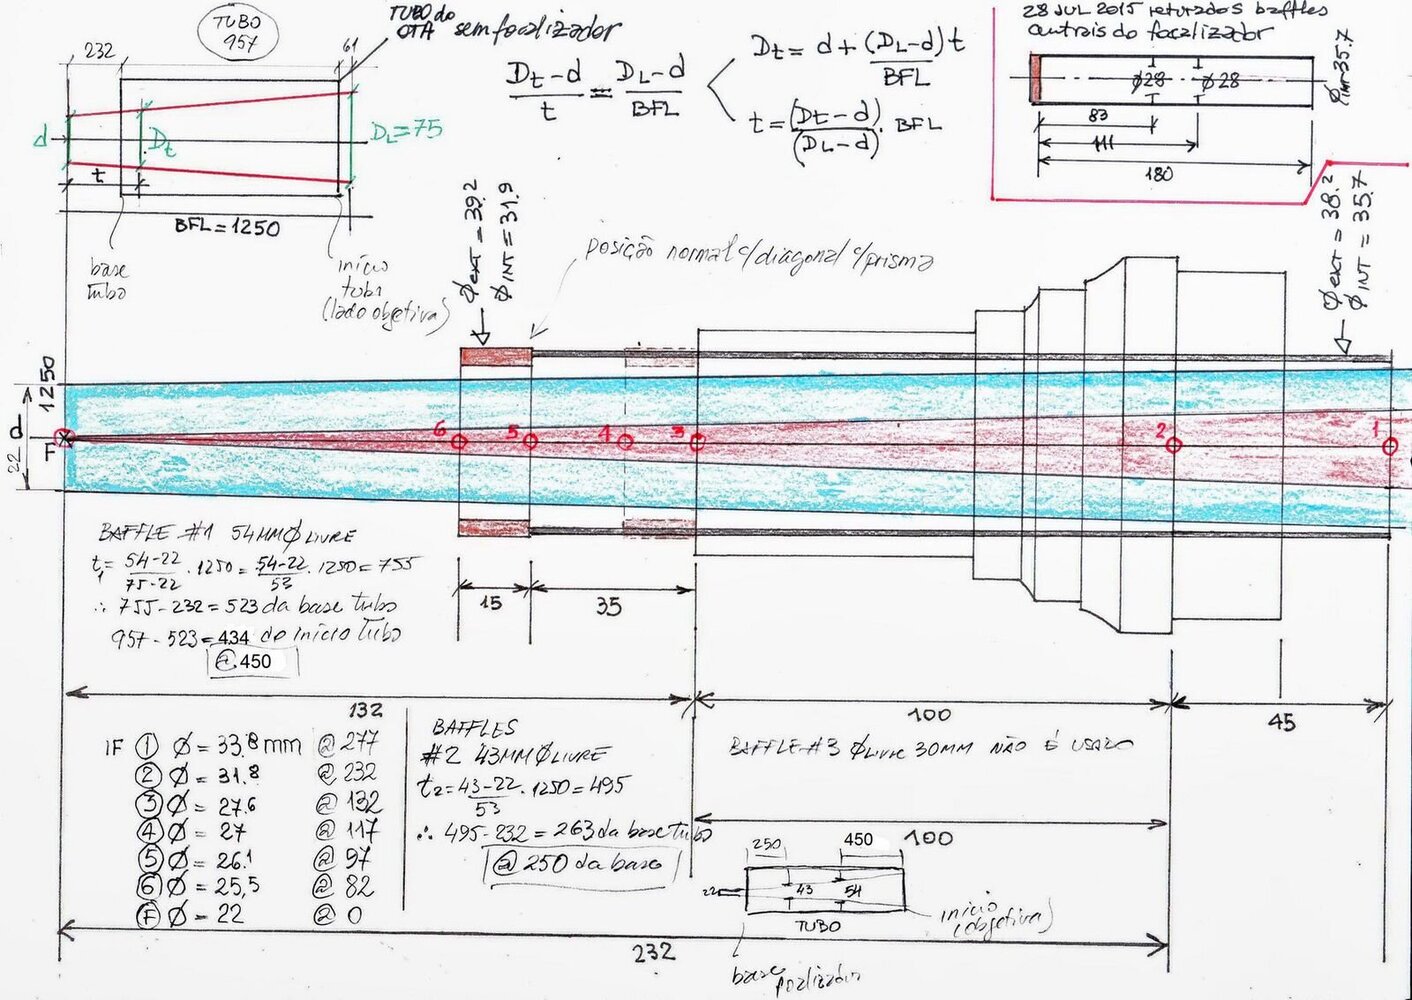 TUBO
957
232
61
TUBO do
OTA sem focalizador
d
Dt
DL=75
t
BFL=1250
base
tubo
início
tubo
(lado objetiva)
Dt-d = DL-d
t BFL
Dt= d+(DL-d)t
BFL
t=(Dt-d). BFL
(DL-d)
28 JUL 2015 retirados baffles
centrais do focalizador
Ø28
Ø28
ØINT=35.7
83
111
180
ØEXT=39.2
ØINT=31.9
posição normal c/diagonal c/prisma
ØEXT=38.2
ØINT=35.7
1250
d
22
F
6
5
4
3
2
1
BAFFLE #1 54MMØLIVRE
t1= 54-22 .1250= 54-22 .1250=755
75-22 53
∴ 755-232=523 da base tubo
957-523=434 do início tubo
@ 450
15
35
132
100
45
IF ① Ø=33,8mm @ 277
② Ø= 31.8 @ 232
③ Ø= 27.6 @ 132
④ Ø= 27 @ 117
⑤ Ø= 26.1 @ 97
⑥ Ø= 25,5 @ 82
Ⓕ Ø= 22 @ 0
BAFFLES
#2 43MMØLIVRE
t2=43-22 .1250=495
53
∴ 495-232=263 da base tubo
@ 250 da base
BAFFLE #3 ØLIVRE 30MM NÃO É USADO
100
250
450
22
43
54
TUBO
início
(objetiva)
base
focalizador
232